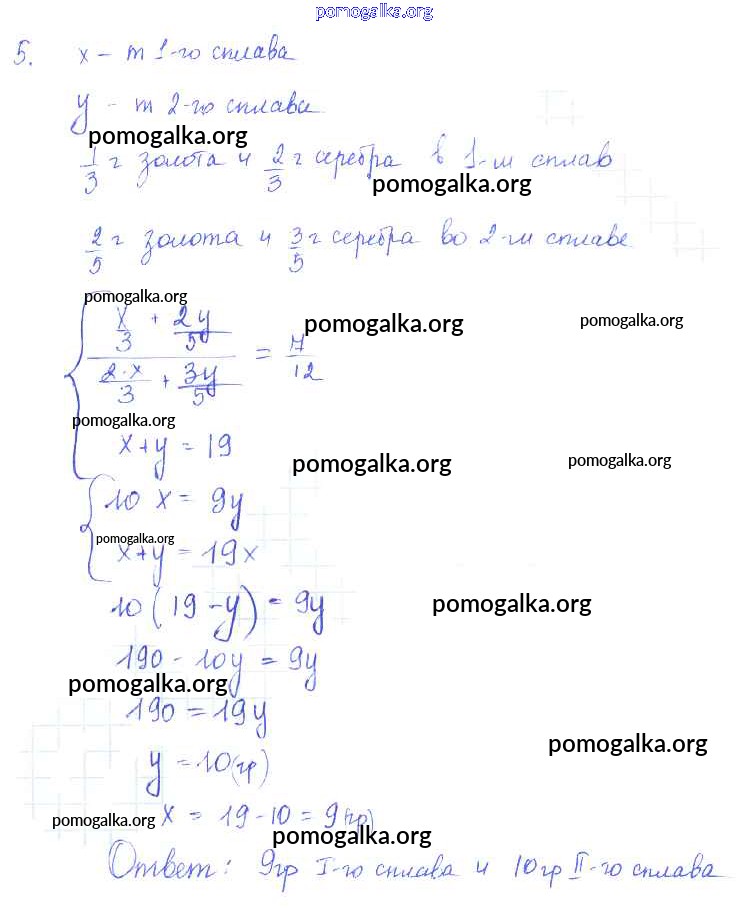 pomogalka.org
5. x – m 1-го сплава
y – m 2-го сплава
pomogalka.org
1/3 г золота и 2/3 г серебра в 1-м сплав
pomogalka.org
2/5 г золота и 3/5 г серебра во 2-м сплаве
pomogalka.org
{ (x/3 + 2y/5) / (2·x/3 + 3y/5) = 7/12
pomogalka.org pomogalka.org
pomogalka.org
x + y = 19
pomogalka.org pomogalka.org
{ 10 x = 9y
pomogalka.org
x + y = 19x
10 (19 – y) = 9y
pomogalka.org
190 – 10y = 9y
pomogalka.org
190 = 19y
pomogalka.org
y = 10 (гр)
pomogalka.org x = 19 – 10 = 9 (гр)
pomogalka.org
Ответ: 9гр I-го сплава и 10гр II-го сплава